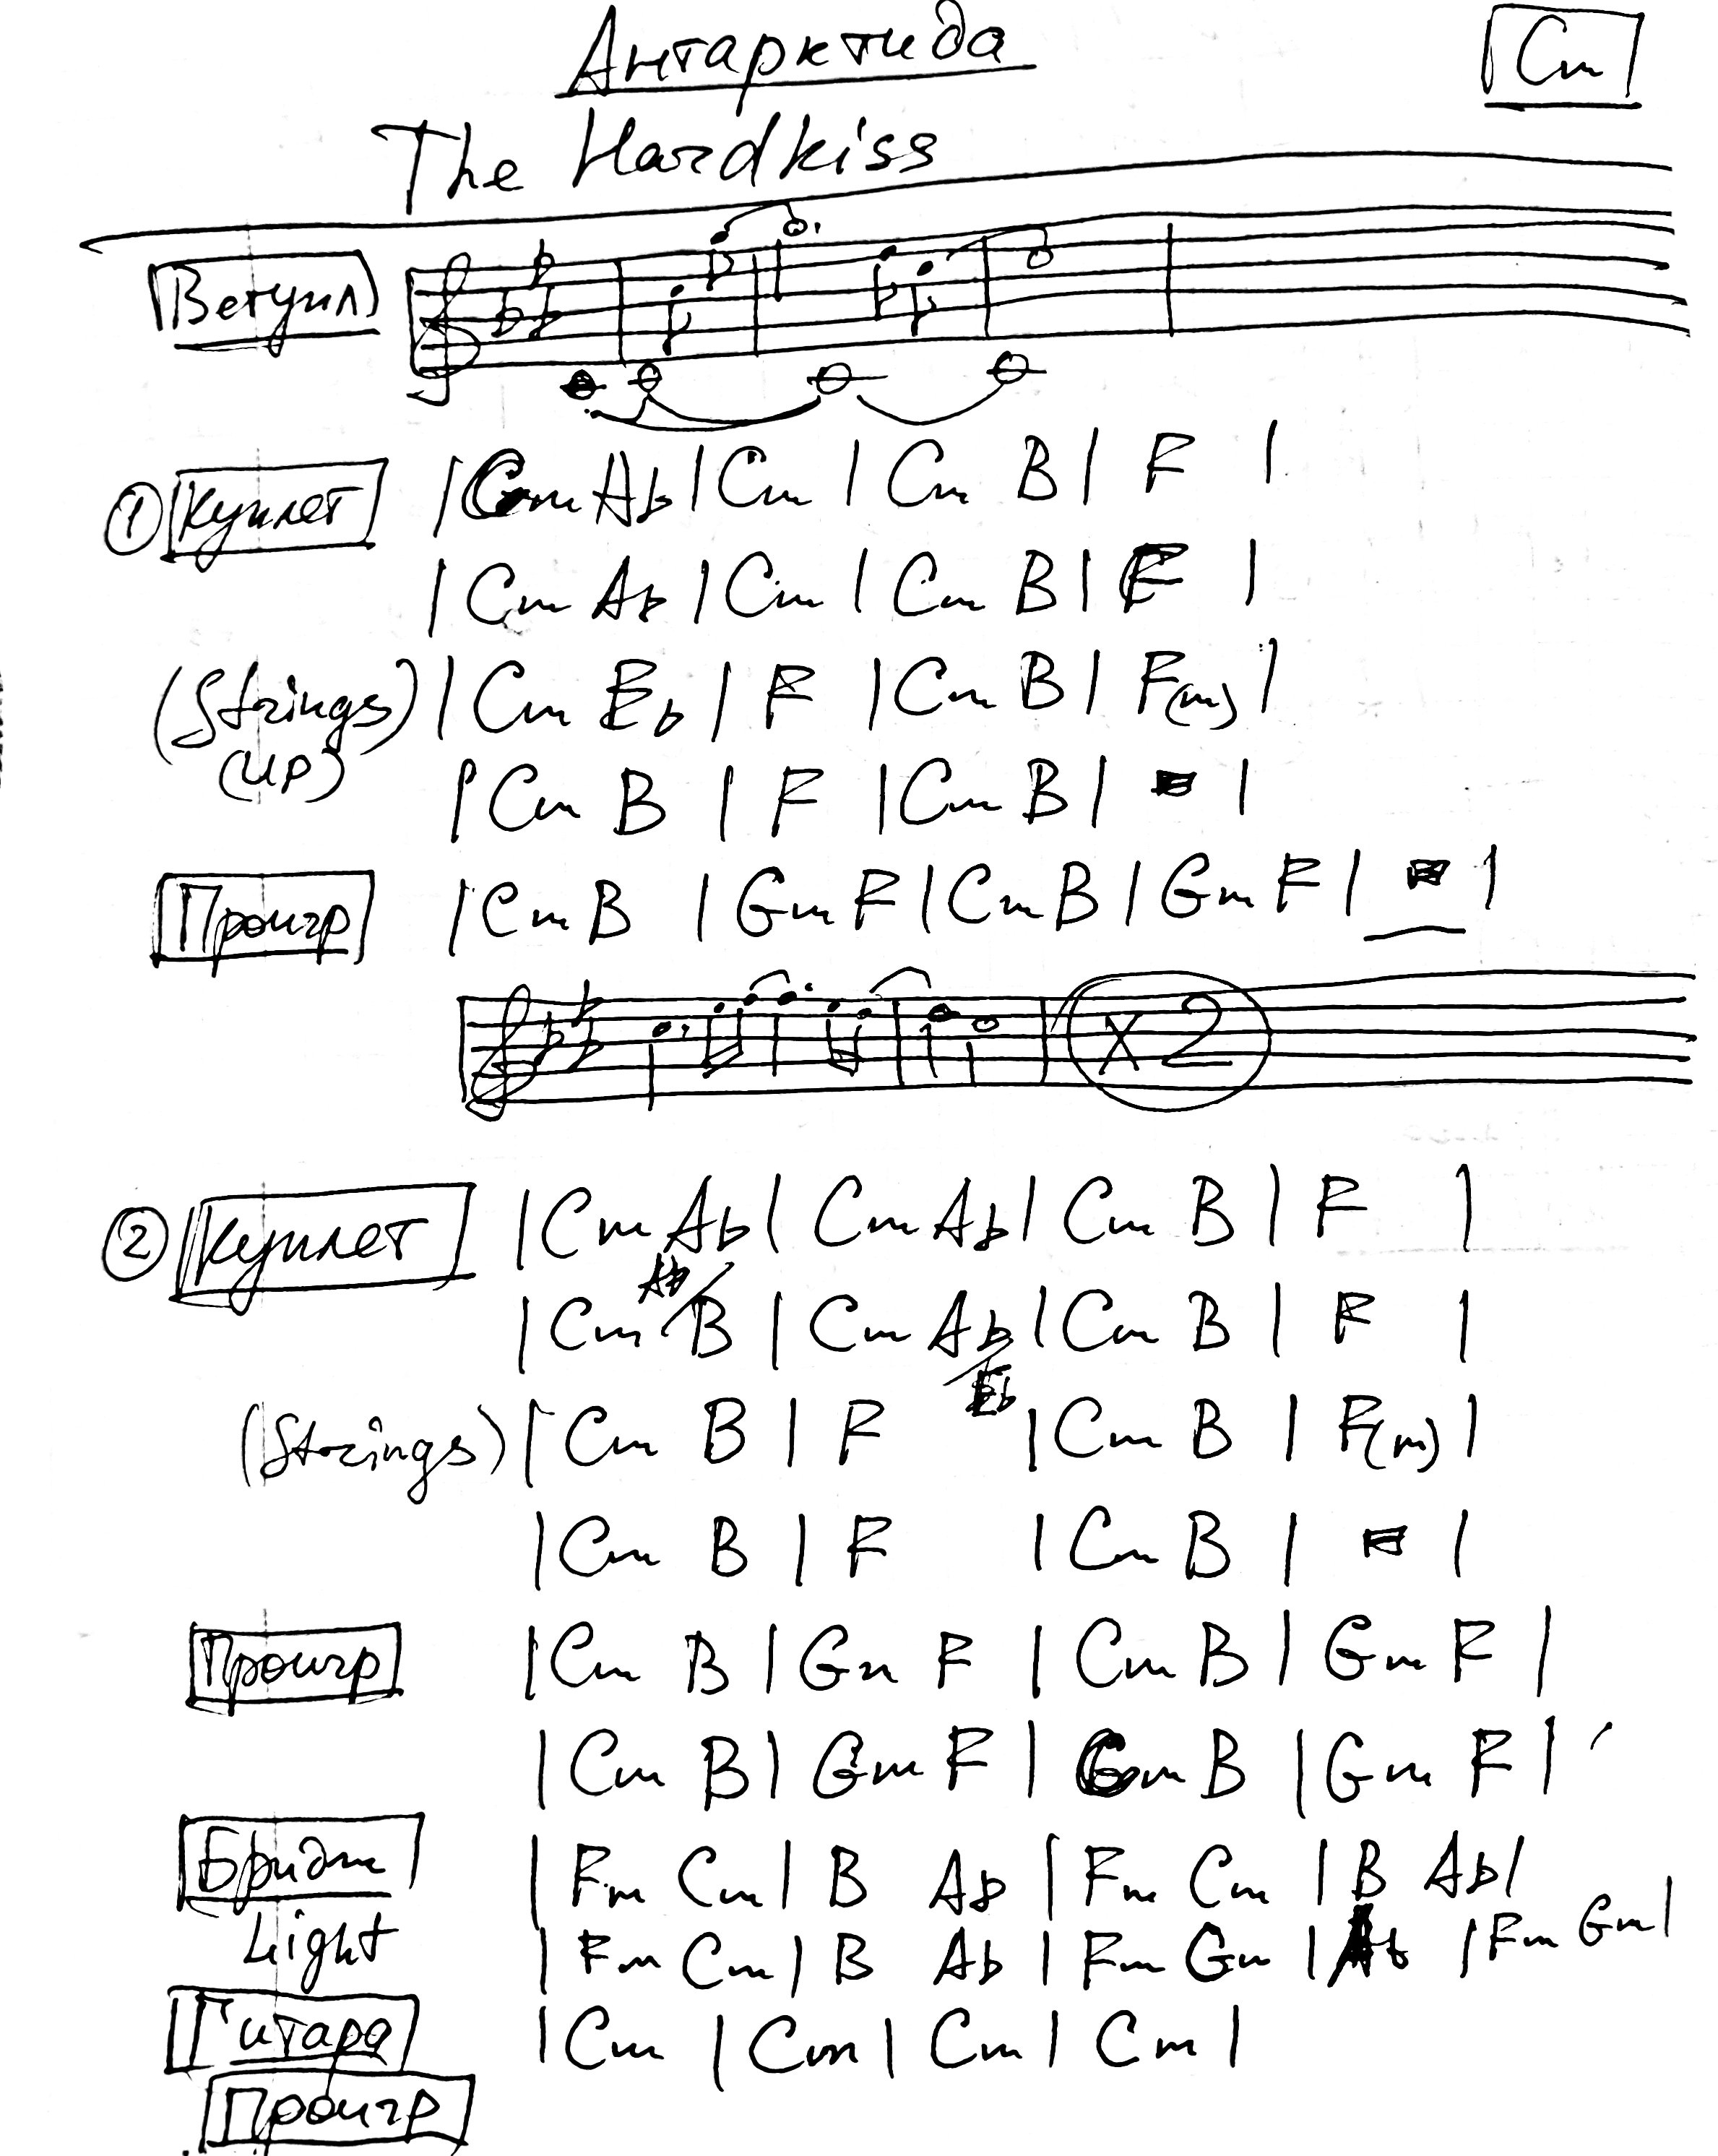 Антарктида
Cm
The Hardkiss
Вступл
① Куплет | Cm Ab | Cm | Cm B | F |
| Cm Ab | Cm | Cm B | F |
(Strings) | Cm Eb | F | Cm B | F(m) |
(up) | Cm B | F | Cm B | |
Проигр | Cm B | Gm F | Cm B | Gm F | |
x2
② Куплет | Cm Ab | Cm Ab | Cm B | F |
Ab/
| Cm B | Cm Ab | Cm B | F |
/Eb
(Strings) | Cm B | F | Cm B | F(m) |
| Cm B | F | Cm B | |
Проигр | Cm B | Gm F | Cm B | Gm F |
| Cm B | Gm F | Gm B | Gm F |
Бридж | Fm Cm | B Ab | Fm Cm | B Ab |
Light | Fm Cm | B Ab | Fm Gm | Ab | Fm Gm |
Гитара | Cm | Cm | Cm | Cm |
Проигр